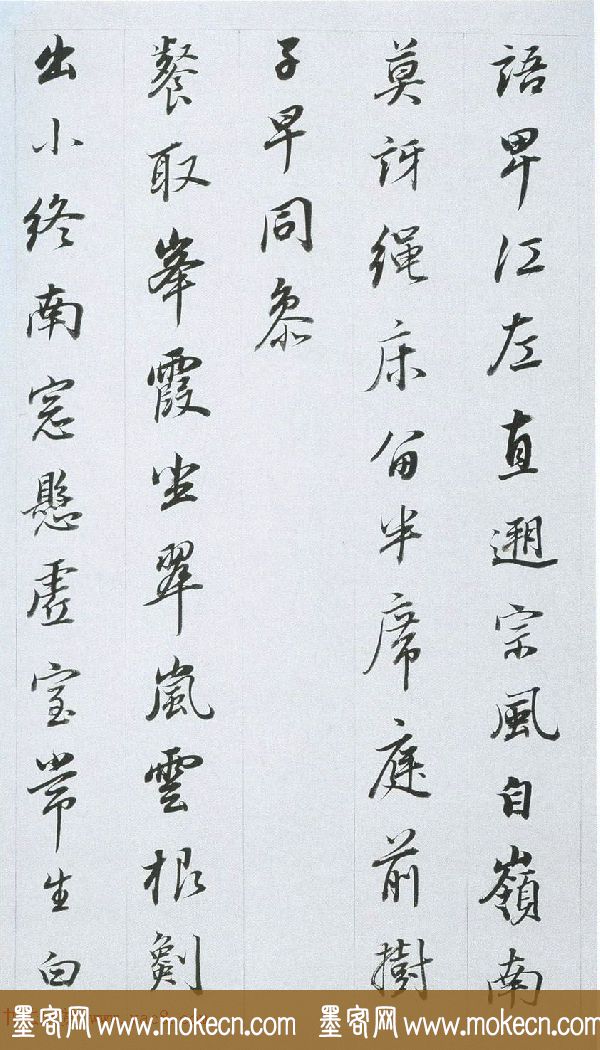 語卑江左直遡宗風自嶺南
莫訝繩床留半席庭前樹
子早同參
餐取峯霞坐翠嵐雲根劖
出小終南窓懸虛室常生白
墨客网 www.mokecn.com 墨客网 www.mokecn.com